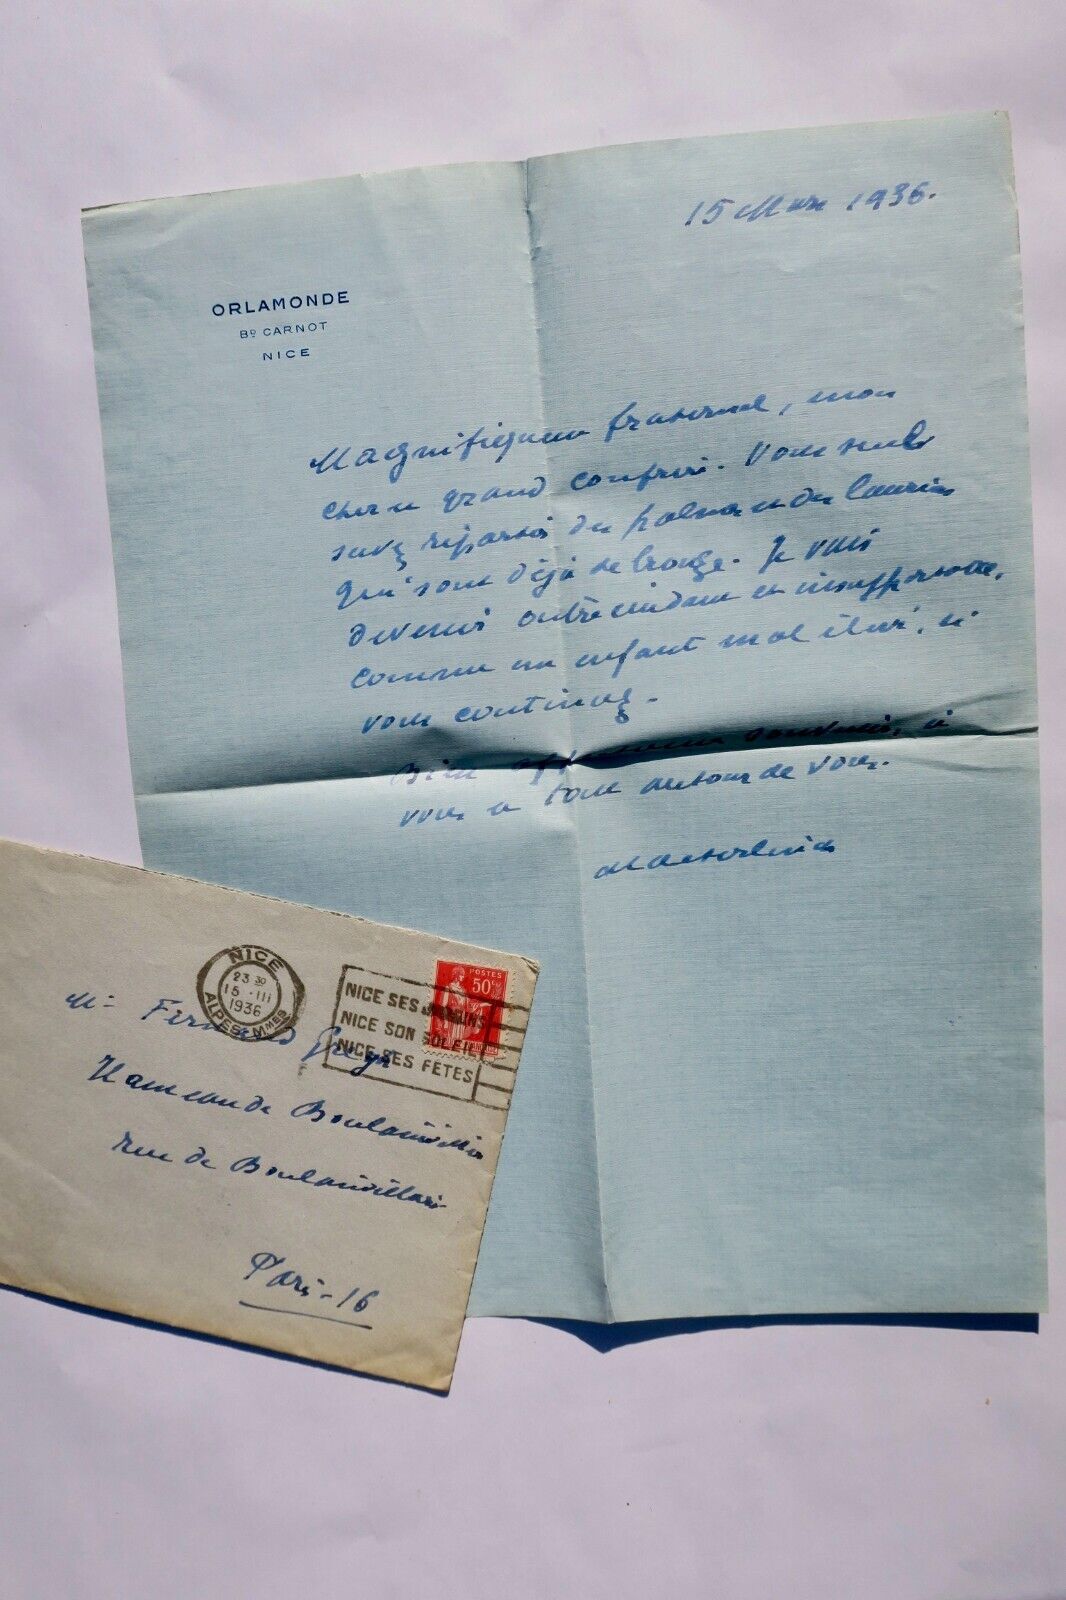 15 Mars 1936.
ORLAMONDE
Bᴰ CARNOT
NICE
Magnifique et fraternel, mon
cher et grand confrère. Vous seul
savez répartir des palmes et des lauriers
qui sont déjà de bronze. Je vais
devenir outrecuidant et insupportable,
comme un enfant mal élevé, si
vous continuez.
Bien affectueux souvenir, à
vous et tout autour de vous.
Maeterlinck
NICE
23 30
15 · III
1936
ALPES Mmes
POSTES
50c
NICE SES JARDINS
NICE SON SOLEIL
NICE SES FÊTES
Mr Fernand Gregh
Hameau de Boulainvilliers
rue de Boulainvilliers
Paris-16